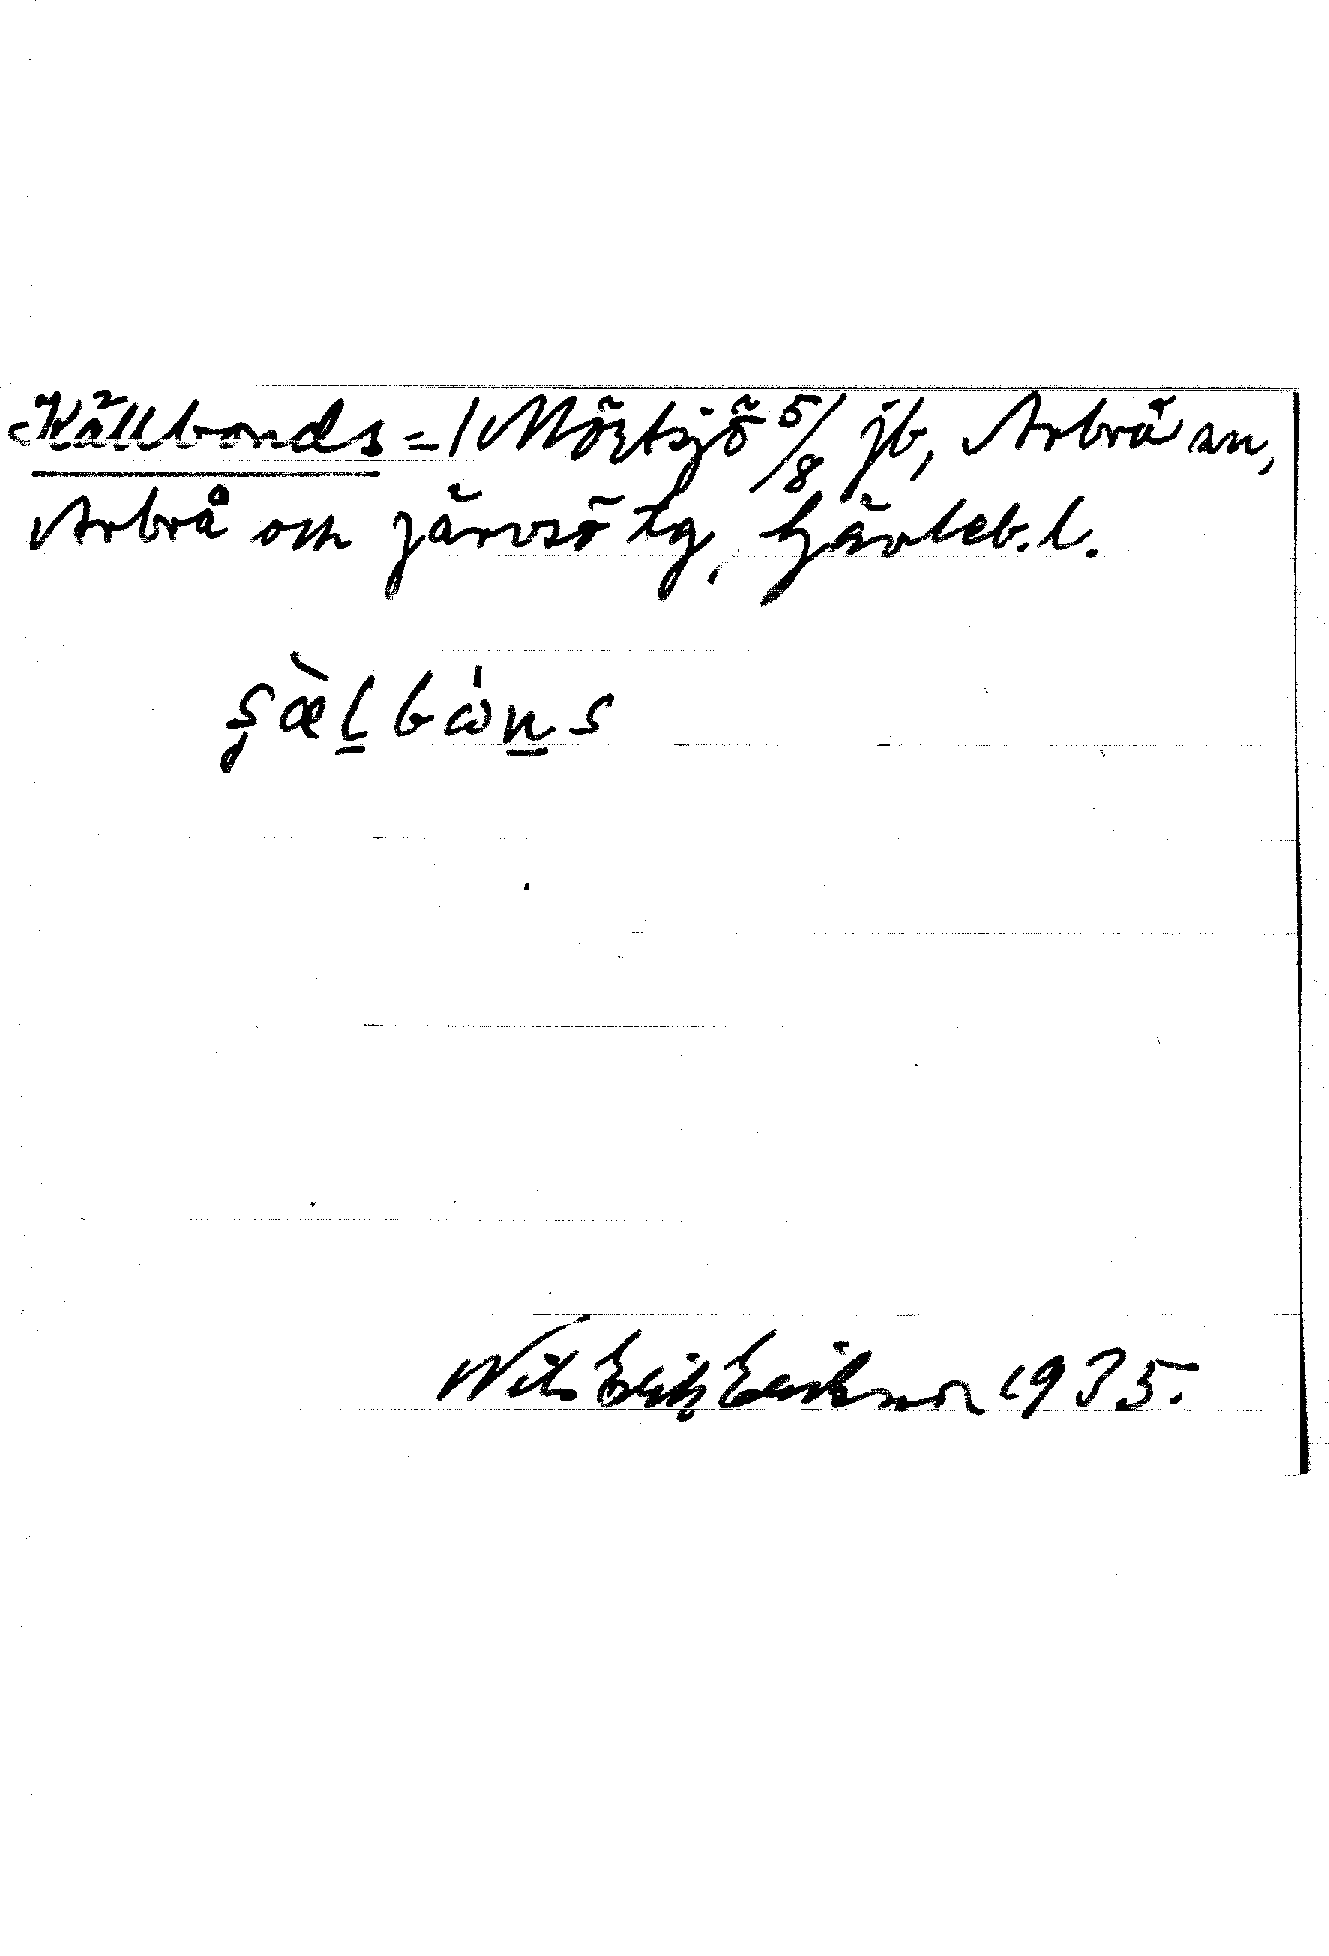 Källbonds = / Mörtsjö 5/8 jb, Arbrå sn,
Arbrå och Järvsö tg, Gävleb. l.
s̨æ̀l̠bώn̠s
Nils Erik Eriksson 1935.